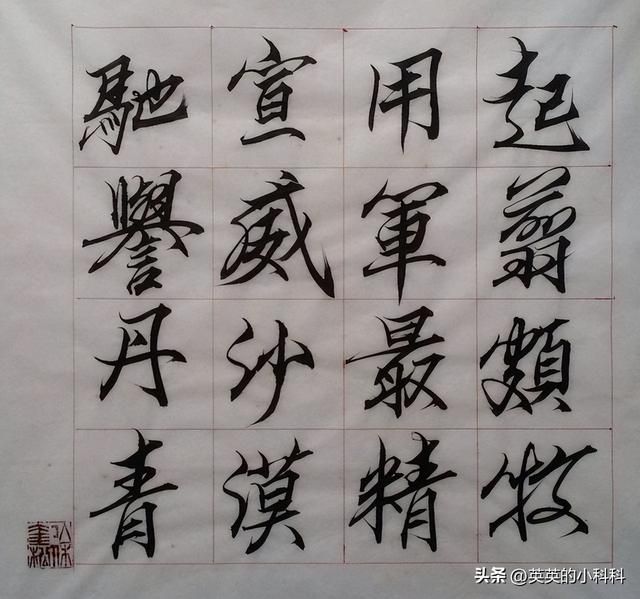 起翦頗牧
用軍最精
宣威沙漠
馳譽丹青
头条 @英英的小科科